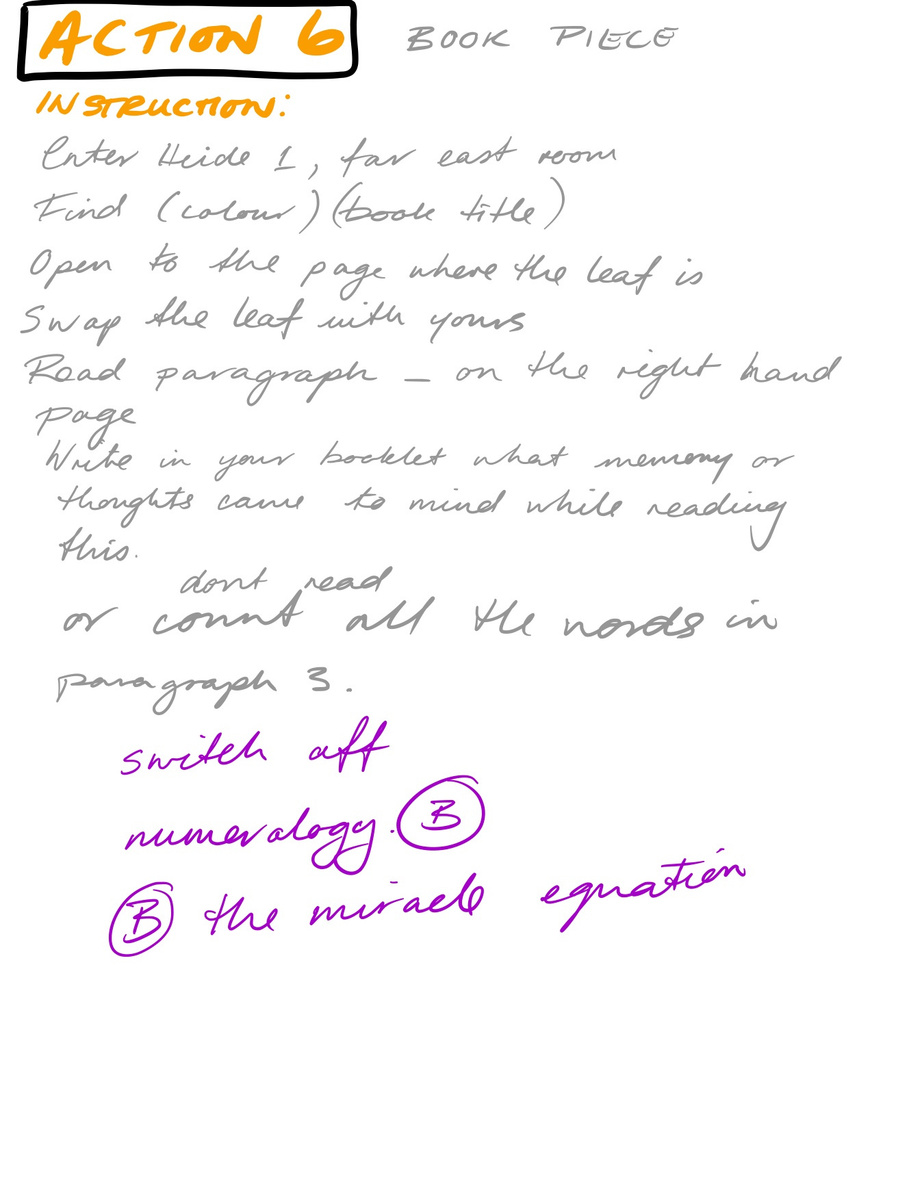 ACTION 6 BOOK PIECE
INSTRUCTION:
Enter Heide 1, far east room
Find (colour) (book title)
Open to the page where the leaf is
Swap the leaf with yours
Read paragraph _ on the right hand
page
Write in your booklet what memory or
thoughts came to mind while reading
this.
dont read
or count all the words in
paragraph 3.
switch off
numerology. B
B the miracle equation